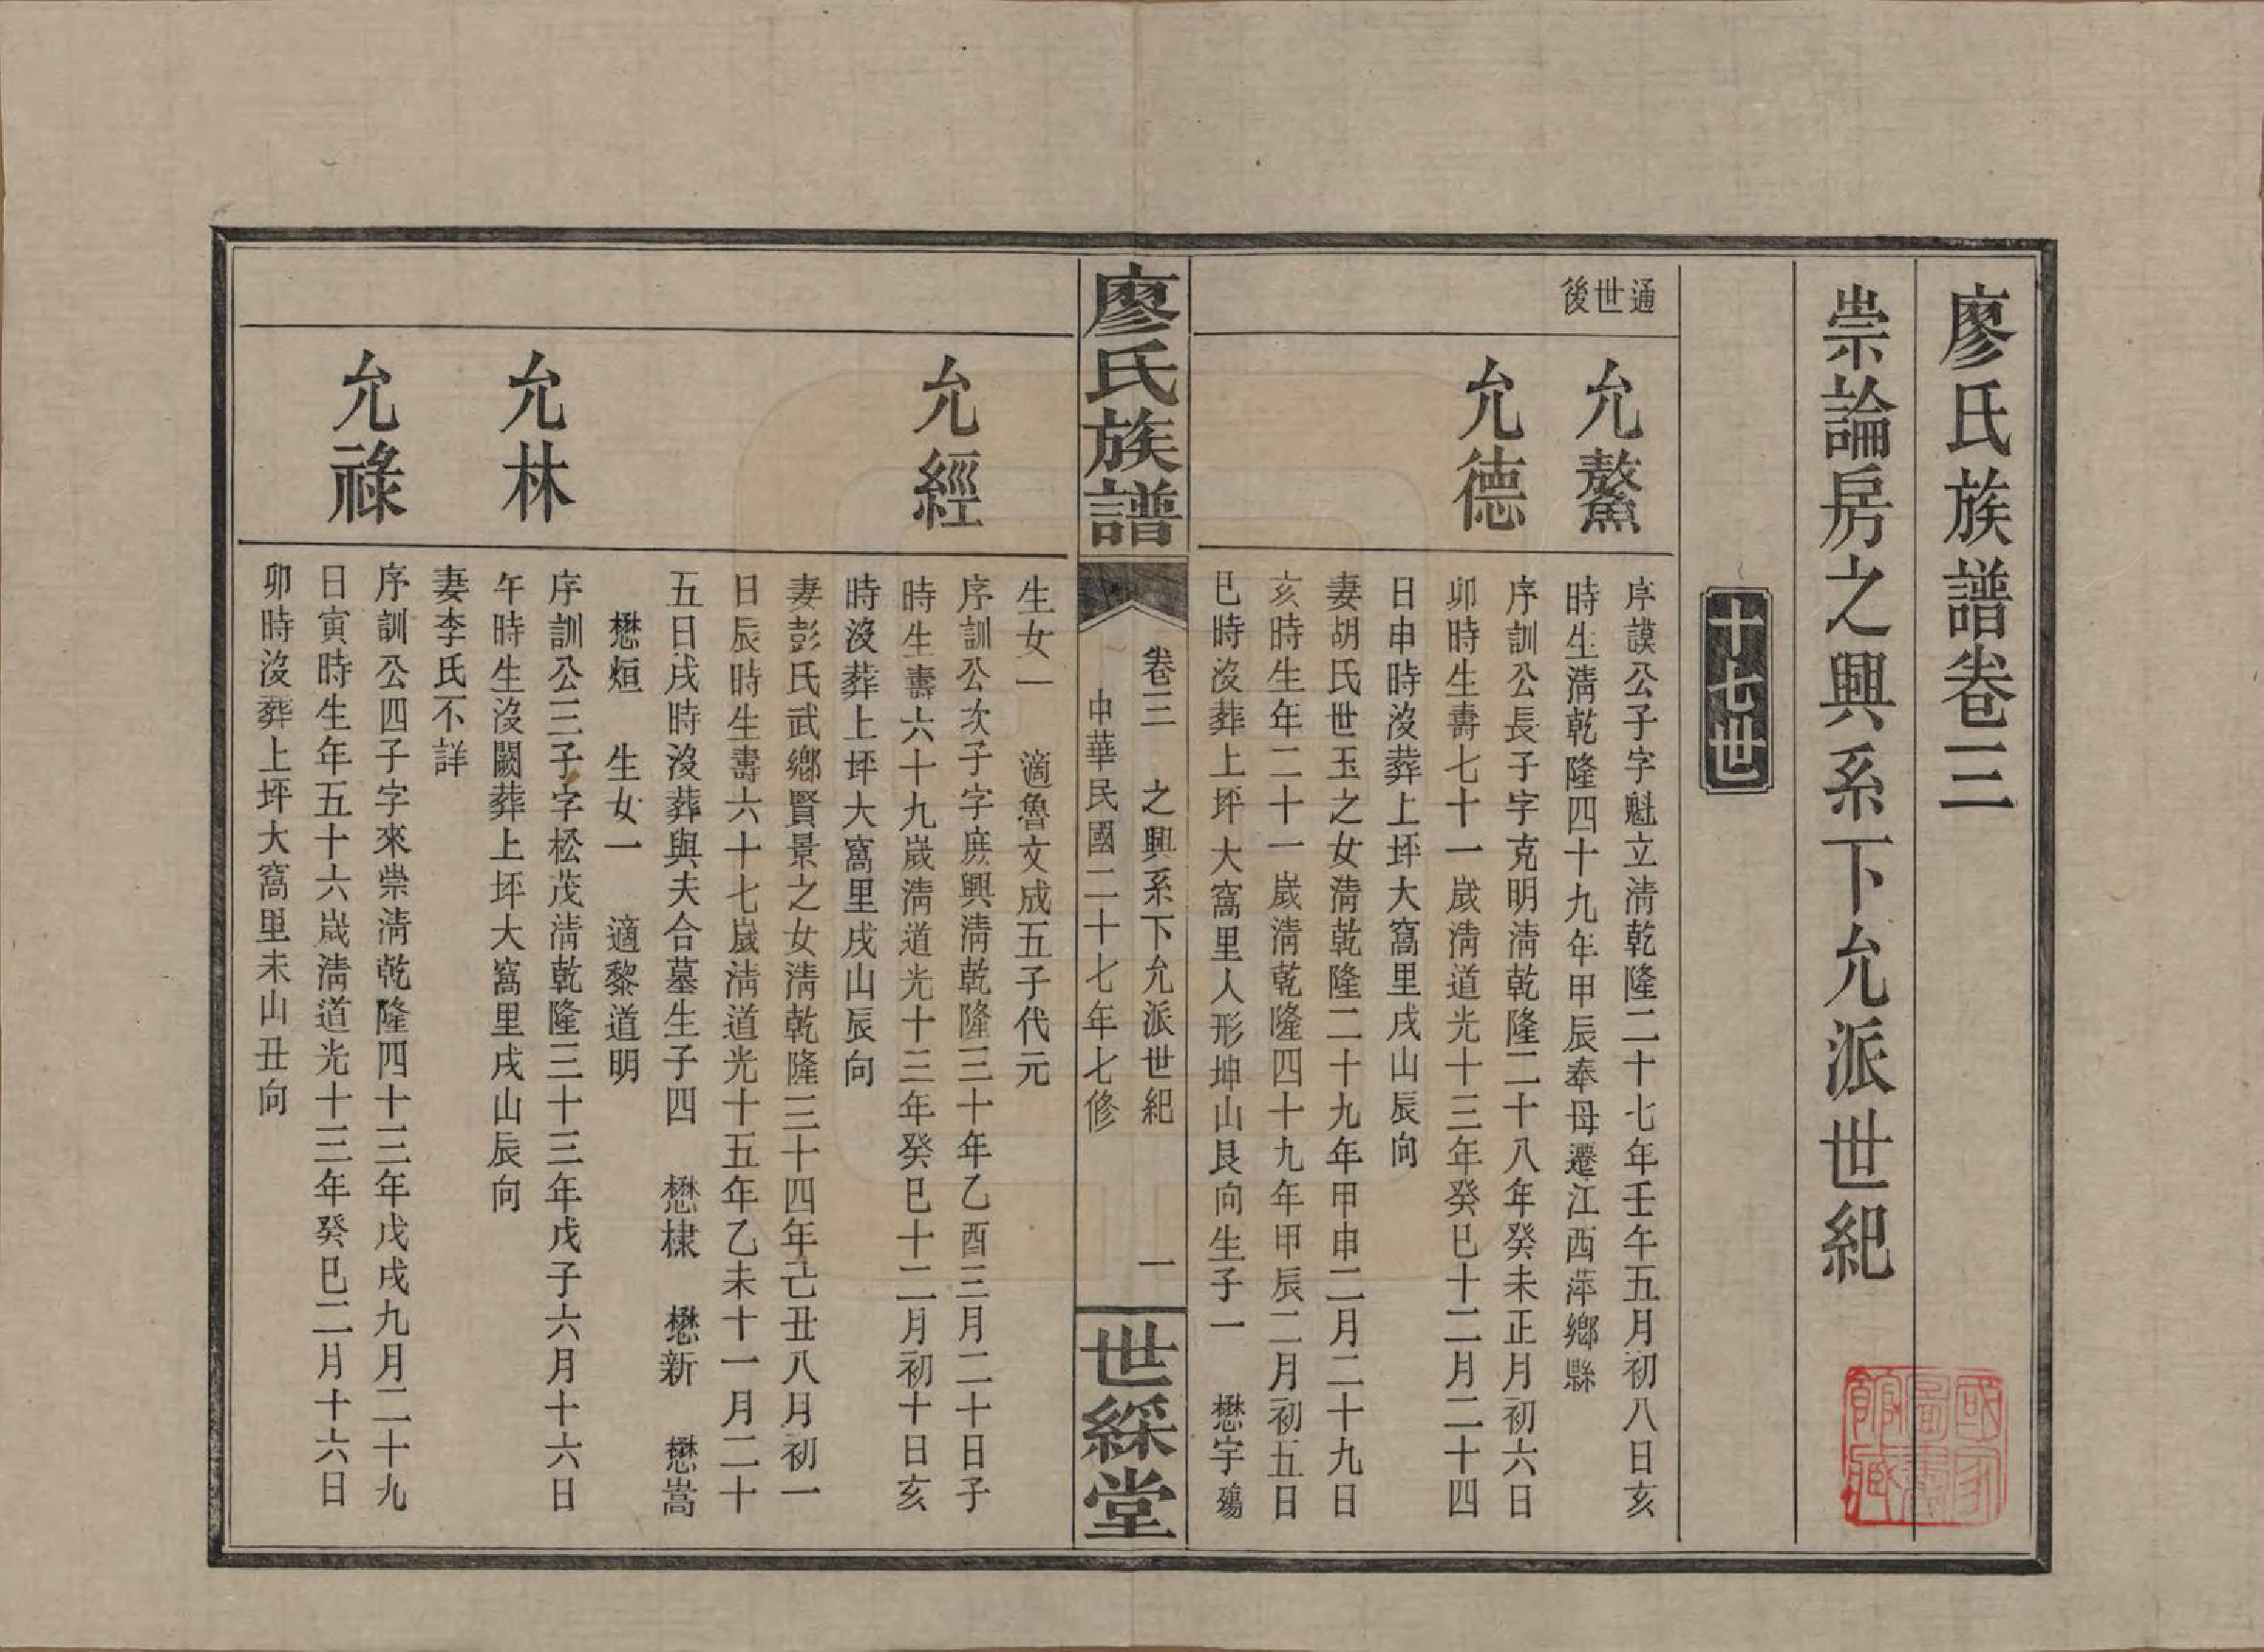 廖氏族譜卷三
崇論房之興系下允派世紀
十七世
通世後
允鰲
序謨公子字魁立清乾隆二十七年壬午五月初八日亥
時生清乾隆四十九年甲辰奉母遷江西萍鄉縣
允德
序訓公長子字克明清乾隆二十八年癸未正月初六日
卯時生壽七十一歲清道光十三年癸巳十二月二十四
日申時沒葬上坪大窩里戌山辰向
妻胡氏世玉之女清乾隆二十九年甲申二月二十九日
亥時生年二十一歲清乾隆四十九年甲辰二月初五日
巳時沒葬上坪大窩里人形坤山艮向生子一 懋宇殤
廖氏族譜
卷三 之興系下允派世紀 一
中華民國二十七年七修
世綵堂
生女一 適魯文成五子代元
允經
序訓公次子字庶興清乾隆三十年乙酉三月二十日子
時生壽六十九歲清道光十三年癸巳十二月初十日亥
時沒葬上坪大窩里戌山辰向
妻彭氏武鄉賢景之女清乾隆三十四年己丑八月初一
日辰時生壽六十七歲清道光十五年乙未十一月二十
五日戌時沒葬與夫合墓生子四 懋棣 懋新 懋嵩
懋烜 生女一 適黎道明
允林
序訓公三子字松茂清乾隆三十三年戊子六月十六日
午時生沒闕葬上坪大窩里戌山辰向
妻李氏不詳
允祿
序訓公四子字來崇清乾隆四十三年戊戌九月二十九
日寅時生年五十六歲清道光十三年癸巳二月十六日
卯時沒葬上坪大窩里未山丑向
國家圖書館藏